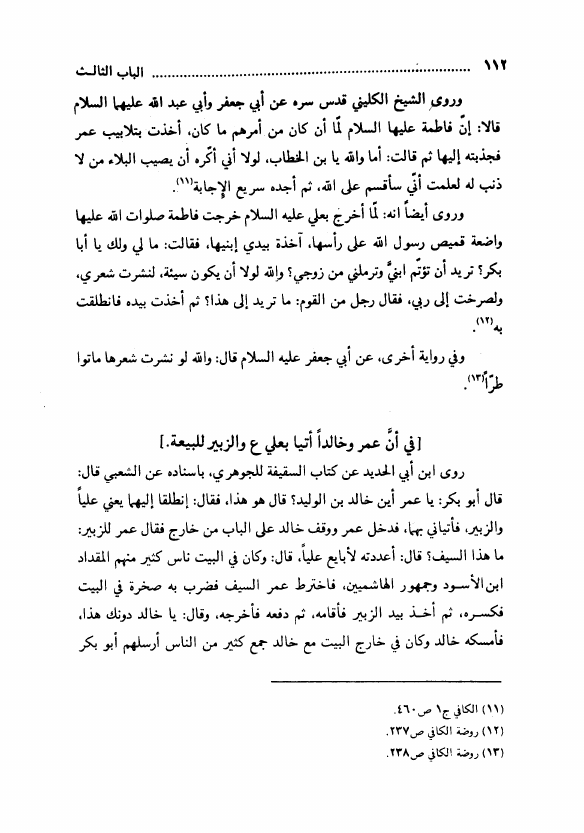 ١١٢ ........................................ الباب الثالث
وروى الشيخ الكليني قدس سره عن أبي جعفر وأبي عبد الله عليهما السلام
قالا: إنّ فاطمة عليها السلام لمّا أن كان من أمرهم ما كان، أخذت بتلابيب عمر
فجذبته إليها ثم قالت: أما والله يا بن الخطاب، لولا أني أكره أن يصيب البلاء من لا
ذنب له لعلمت أنّي سأقسم على الله، ثم أجده سريع الإجابة(١١).
وروى أيضاً انه: لمّا أخرج بعلي عليه السلام خرجت فاطمة صلوات الله عليها
واضعة قميص رسول الله على رأسها، آخذة بيدي إبنيها، فقالت: ما لي ولك يا أبا
بكر؟ تريد أن تؤتّم ابنيّ وترملني من زوجي؟ والله لولا أن يكون سيئة، لنشرت شعري،
ولصرخت إلى ربي، فقال رجل من القوم: ما تريد إلى هذا؟ ثم أخذت بيده فانطلقت
به(١٢).
وفي رواية أخرى، عن أبي جعفر عليه السلام قال: والله لو نشرت شعرها ماتوا
طرّاً(١٣).
[في أنَّ عمر وخالداً أتيا بعلي ع والزبير للبيعة.]
روى ابن أبي الحديد عن كتاب السقيفة للجوهري، باسناده عن الشعبي قال:
قال أبو بكر: يا عمر أين خالد بن الوليد؟ قال هو هذا، فقال: إنطلقا إليهما يعني علياً
والزبير، فأتياني بهما، فدخل عمر ووقف خالد على الباب من خارج فقال عمر للزبير:
ما هذا السيف؟ قال: أعددته لأبايع علياً، قال: وكان في البيت ناس كثير منهم المقداد
ابن الأسود وجمهور الهاشميين، فاخترط عمر السيف فضرب به صخرة في البيت
فكسره، ثم أخذ بيد الزبير فأقامه، ثم دفعه فأخرجه، وقال: يا خالد دونك هذا،
فأمسكه خالد وكان في خارج البيت مع خالد جمع كثير من الناس أرسلهم أبو بكر
(١١) الكافي ج١ ص٤٦٠.
(١٢) روضة الكافي ص٢٣٧.
(١٣) روضة الكافي ص٢٣٨.